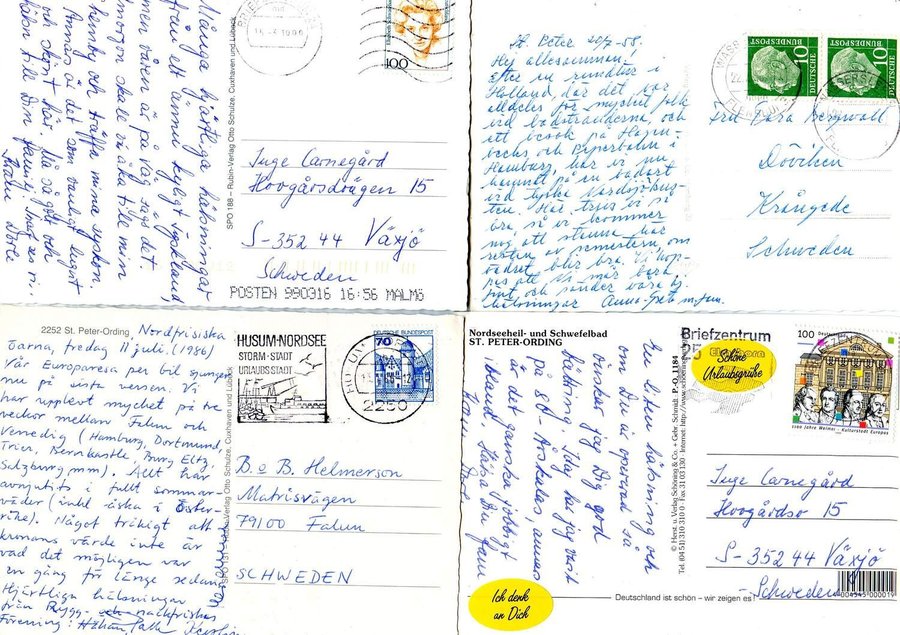 Många hjärtliga hälsningar
från ett ännu kyligt Tyskland,
men våren är på väg sägs det
i morgon skall vi åka till min
hemby och träffa mina syskon.
Annars är det som vanligt lugnt
och skönt här. Må så gott och
hälsn till Din familj. Snart ses vi.
Kram Dorle
15.-3.1999
100
SPO 188 – Rubin-Verlag Otto Schulze, Cuxhaven und Lübeck
Inge Carnegård
Hovgårdsvägen 15
S-352 44 Växjö
Schweden
POSTEN 990316 16:56 MALMÖ
St. Peter 20/7-58.
Hej allesammans.
Efter en rundtur i
Holland, där det var
alldeles för mycket folk
vid badstränderna, och
ett besök på Hagen-
becks och Piperbahn i
Hamburg, har vi nu
hamnat på en badort
vid tyska Nordsjökus-
ten. Här trivs vi så
bra, så vi kommer
nog att stanna här
resten av semestern, om
vädret blir bra. Vi hop-
pas att Ni mår bra
hälsningar Anna-Greta m. fam.
DEUTSCHE BUNDESPOST 10
DEUTSCHE BUNDESPOST 10
Bergwall
Döviken
Krångede
Schweden
2252 St. Peter-Ording
Nordfrisiska
öarna, fredag 11 juli. (1986)
Vår Europaresa per bil sjunger
nu på sista versen. Vi
har upplevt mycket på tre
veckor mellan Falun och
Venedig (Hamburg, Dortmund,
Trier, Bernkastle Burg Eltz,
Salzburg mm). Allt har
avnjutits i fullt sommar-
väder (inkl åska i Öster-
rike). Något tråkigt att
kronans värde inte är
vad det möjligen var
en gång för länge sedan.
Hjärtliga hälsningar
från Rygg- och nackfriska
Förening: Håkan,
SPO 131 – Rubin-Verlag Otto Schulze, Cuxhaven und Lübeck
HUSUM-NORDSEE
STORM-STADT
URLAUBSSTADT
2250
DEUTSCHE BUNDESPOST
70
B o B. Helmerson
Matrisvägen
79100 Falun
SCHWEDEN
Nordseeheil- und Schwefelbad
ST. PETER-ORDING
En liten hälsning och
om Du är opererad så
önskar jag Dig god
bättring. Nu har jag varit
på 80-årskalas, annars
är det ganska jobbigt
ibland. Hälsa Din familj
Kram Dorle
Ich denk
an Dich
© Herst. u. Verlag Schöning & Co. + Gebr. Schmidt
P-O 1184
Tel. (04 51) 310 31 0 · Fax 31 03 130 · Internet: http://www.
Briefzentrum
25
Schöne
Urlaubsgrüße
100 Deutschland
1100 Jahre Weimar – Kulturstadt Europas
Inge Carnegård
Hovgårdsv 15
S-352 44 Växjö
Schweden
Deutschland ist schön – wir zeigen es!